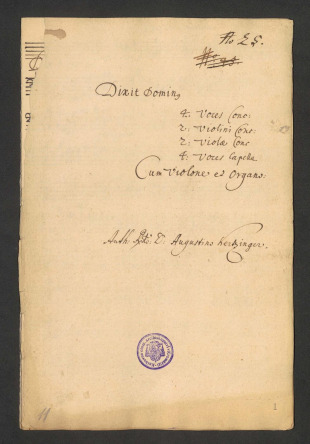 No 25.
Dixit Doming
4: Voces Conc:
2: Violini Conc:
2: Violæ Conc
4: Voces Capella
Cum Violone et Organo.
Auth: D: Augustino Kertzinger.
11
1